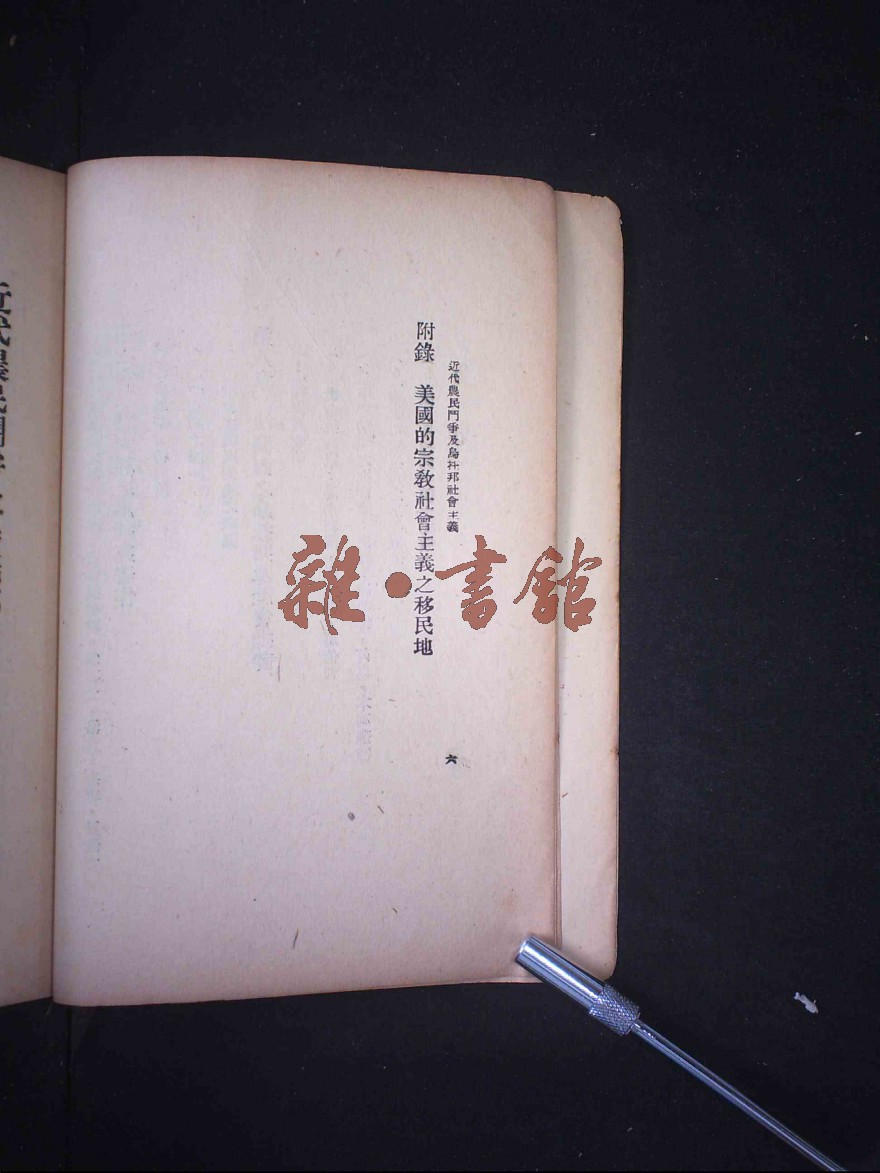 近代農民鬥爭及烏托邦社會主義
六
附錄　美國的宗教社會主義之移民地
雜·書館